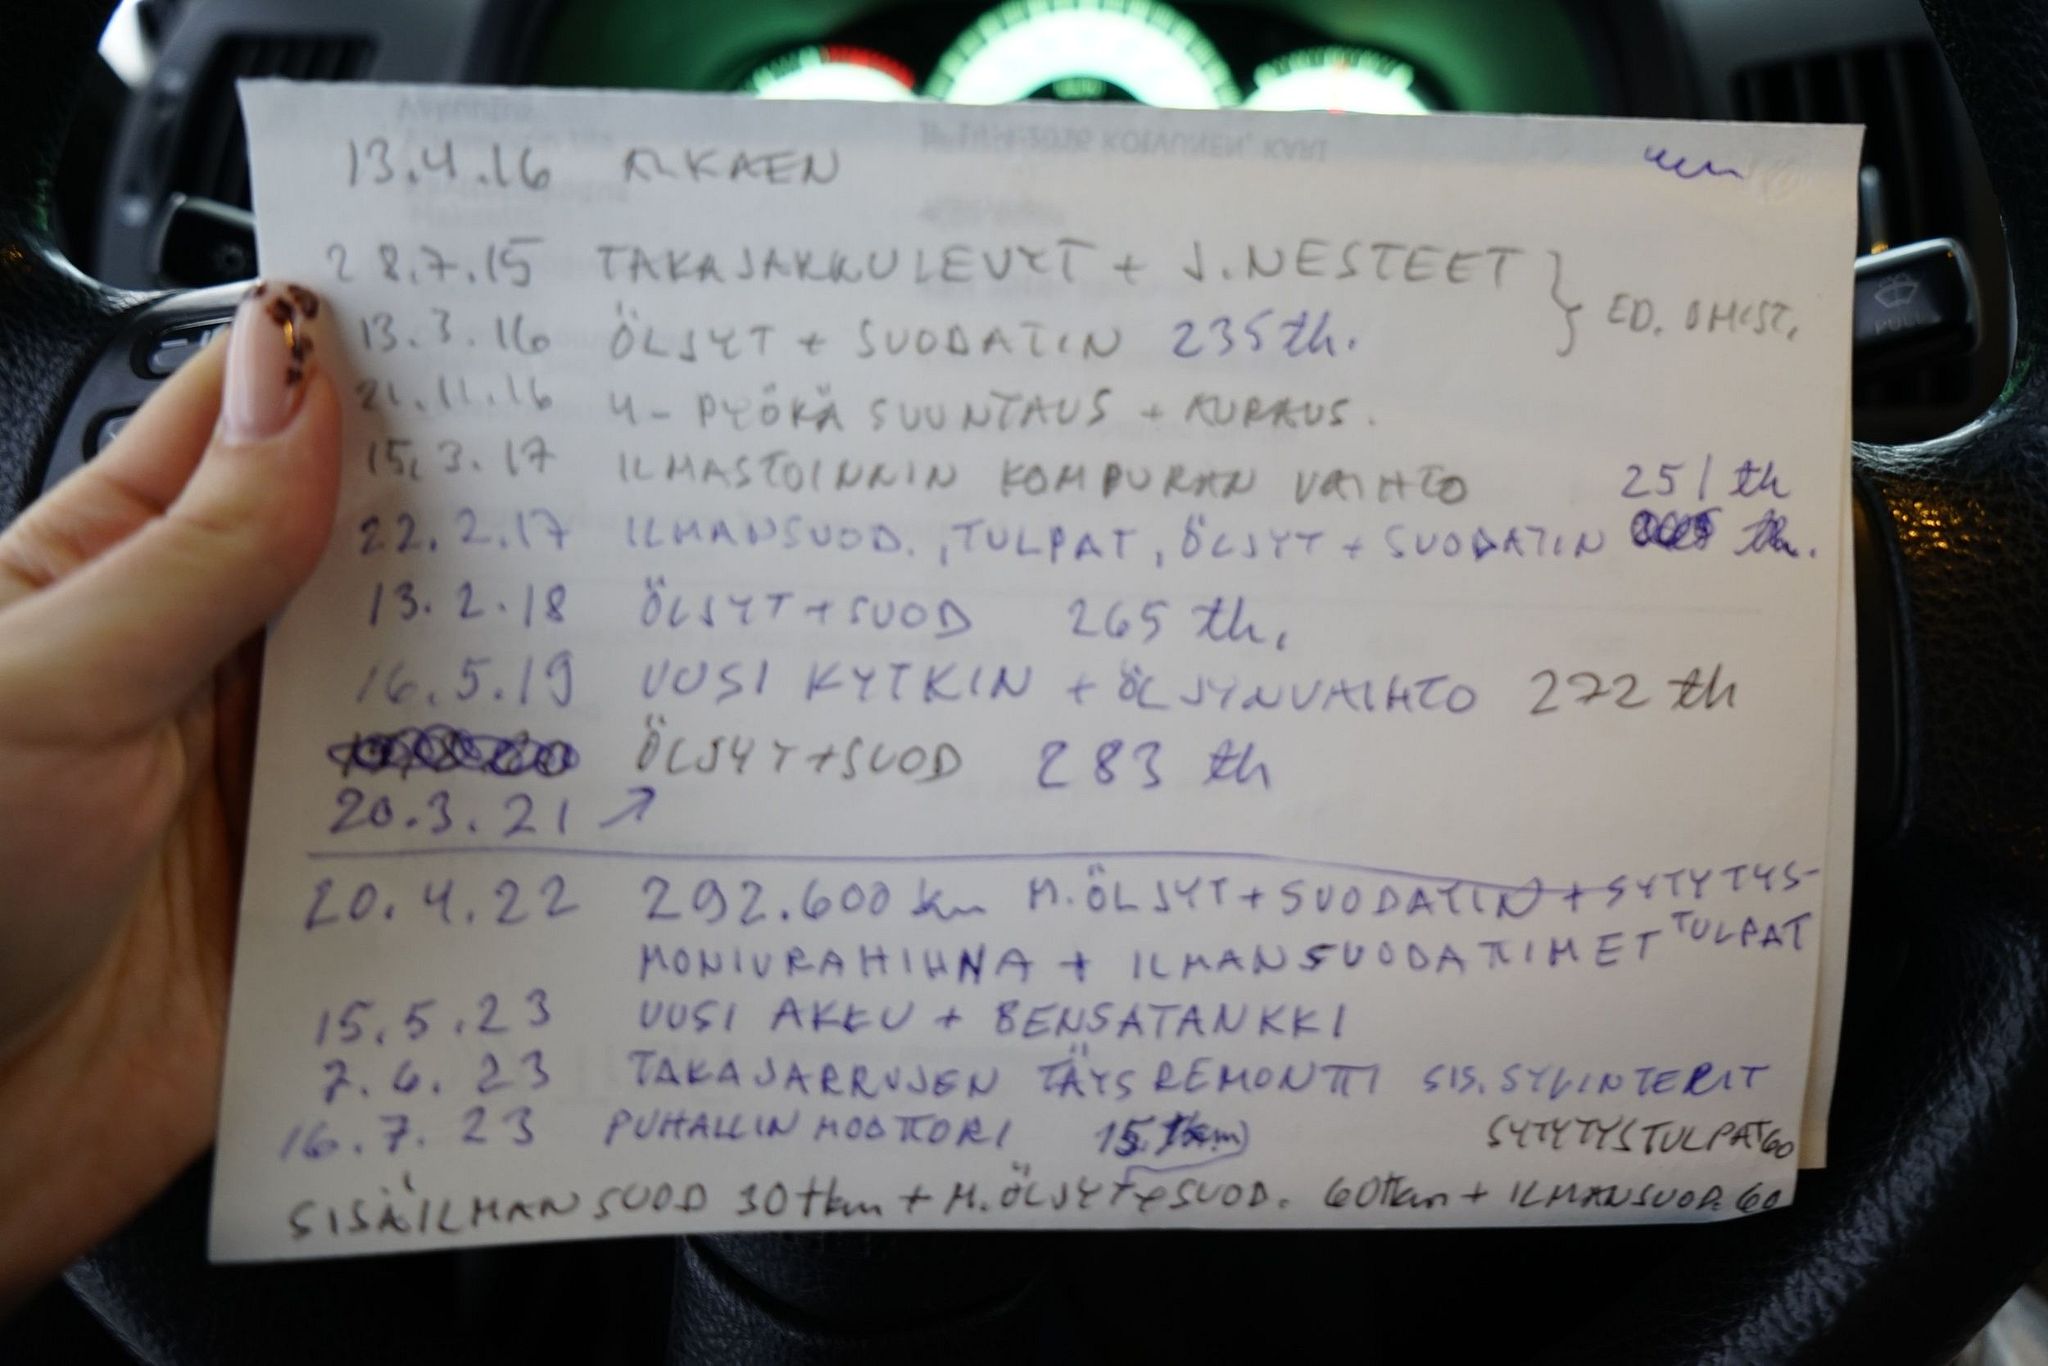 13.4.16 ALKAEN
28.7.15 TAKAJARRULEVYT + J.NESTEET } ED. OMIST.
13.3.16 ÖLJYT + SUODATIN 235 th.
21.11.16 4-PYÖRÄ SUUNTAUS + AURAUS.
15.3.17 ILMASTOINNIN KOMPURAN VAIHTO 251 th
22.2.17 ILMANSUOD., TULPAT, ÖLJYT + SUODATIN th.
13.2.18 ÖLJYT + SUOD 265 th.
16.5.19 UUSI KYTKIN + ÖLJYNVAIHTO 272 th
ÖLJYT + SUOD 283 th
20.3.21 ↗
20.4.22 292.600 km M.ÖLJYT + SUODATIN + SYTYTYS-
TULPAT
MONIURAHIHNA + ILMANSUODATTIMET
15.5.23 UUSI AKKU + BENSATANKKI
7.6.23 TAKAJARRUJEN TÄYSREMONTTI SIS. SYLINTERIT
16.7.23 PUHALLIN MOOTTORI 15 tkm
SYTYTYSTULPAT 60
SISÄILMANSUOD 30 tkm + M.ÖLJYT + SUOD. 60 tkm + ILMANSUOD. 60